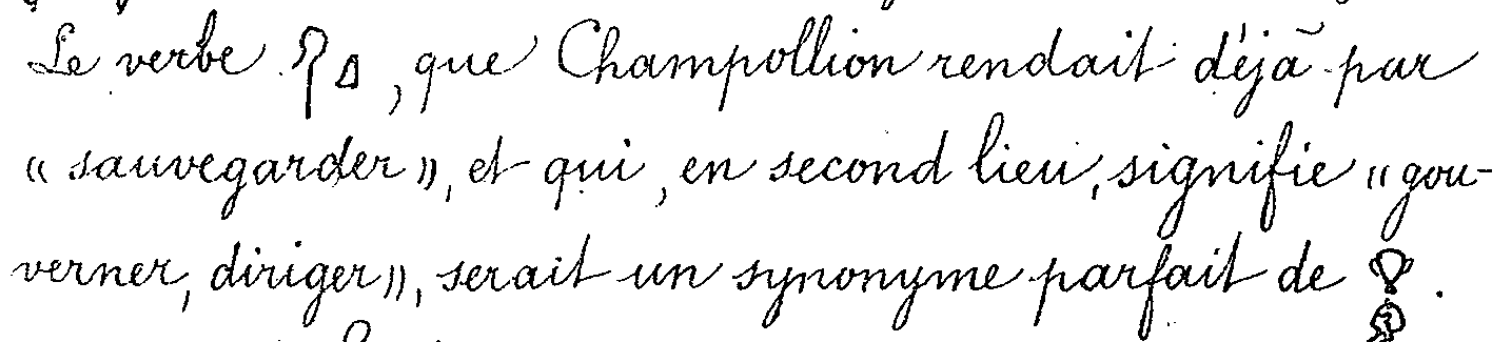 Le verbe 𓋾𓈎, que Champollion rendait déjà par
« sauvegarder », et qui, en second lieu, signifie « gou-
verner, diriger », serait un synonyme parfait de .